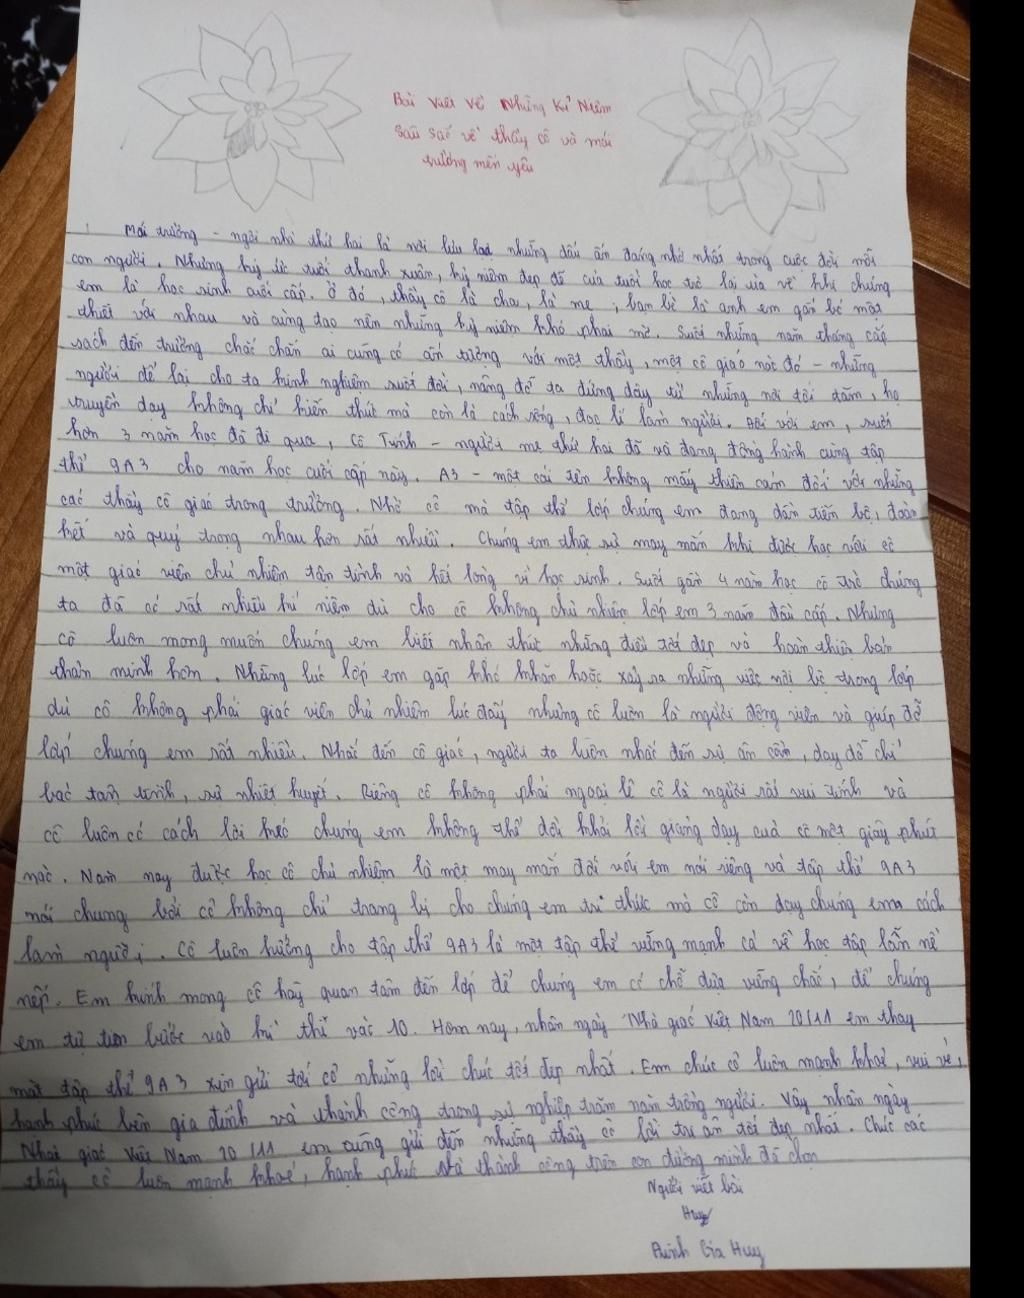 Bài viết về Những Kỉ Niệm
Sâu sắc về thầy cô và mái
trường mến yêu
Mái trường - ngôi nhà thứ hai là nơi lưu lại những dấu ấn đáng nhớ nhất trong cuộc đời mỗi
con người. Những ký ức tuổi thanh xuân, kỷ niệm đẹp đẽ của tuổi học trò lại ùa về khi chúng
em là học sinh cuối cấp. Ở đó, thầy cô là cha, là mẹ, bạn bè là anh em gắn bó mật
thiết với nhau và cùng tạo nên những kỷ niệm khó phai mờ. Suốt những năm tháng cắp
sách đến trường chắc chắn ai cũng có ấn tượng với một thầy, một cô giáo nào đó - những
người để lại cho ta kinh nghiệm suốt đời, nâng đỡ ta đứng dậy từ những nơi tối tăm, họ
truyền dạy không chỉ kiến thức mà còn là cách sống, đạo lí làm người. Đối với em, suốt
hơn 3 năm học đã đi qua, Cô - người mẹ thứ hai đã và đang đồng hành cùng tập
thể 9A3 cho năm học cuối cấp này. A3 - một cái tên không mấy thiện cảm đối với những
các thầy cô giáo trong trường. Nhờ cô mà tập thể lớp chúng em đang dần tiến bộ, đoàn
kết và quý trọng nhau hơn rất nhiều. Chúng em thực sự may mắn khi được học với cô
một giáo viên chủ nhiệm tận tình và hết lòng vì học sinh. Suốt gần 4 năm học cô trò chúng
ta đã có rất nhiều kỉ niệm dù cho cô không chủ nhiệm lớp em 3 năm đầu cấp. Nhưng
cô luôn mong muốn chúng em biết nhận thức những điều tốt đẹp và hoàn thiện bản
thân mình hơn. Những lúc lớp em gặp khó khăn hoặc xảy ra những việc nội bộ trong lớp
dù cô không phải giáo viên chủ nhiệm lúc đấy nhưng cô luôn là người động viên và giúp đỡ
lớp chúng em rất nhiều. Nhắc đến cô giáo, người ta luôn nhắc đến sự ân cần, dạy dỗ chỉ
bảo tận tình, sự nhiệt huyết. Riêng cô không phải ngoại lệ cô là người rất vui tính và
cô luôn có cách lôi kéo chúng em không thể dời khỏi lời giảng dạy của cô một giây phút
nào. Năm nay được học cô chủ nhiệm là một may mắn đối với em nói riêng và tập thể 9A3
nói chung bởi cô không chỉ trang bị cho chúng em tri thức mà cô còn dạy chúng em cách
làm người. Cô luôn hướng cho tập thể 9A3 là một tập thể vững mạnh cả về học tập lẫn nề
nếp. Em kính mong cô hãy quan tâm đến lớp để chúng em có chỗ dựa vững chắc, để chúng
em tự tin bước vào kì thi vào 10. Hôm nay, nhân ngày Nhà giáo Việt Nam 20/11 em thay
mặt tập thể 9A3 xin gửi tới cô những lời chúc tốt đẹp nhất. Em chúc cô luôn mạnh khoẻ, vui vẻ,
hạnh phúc bên gia đình và thành công trong sự nghiệp trăm năm trồng người. Vậy nhân ngày
Nhà giáo Việt Nam 20/11 em cũng gửi đến những thầy cô lời tri ân tốt đẹp nhất. Chúc các
thầy cô luôn mạnh khoẻ, hạnh phúc và thành công trên con đường mình đã chọn
Người viết bài
Huy
Gia Huy